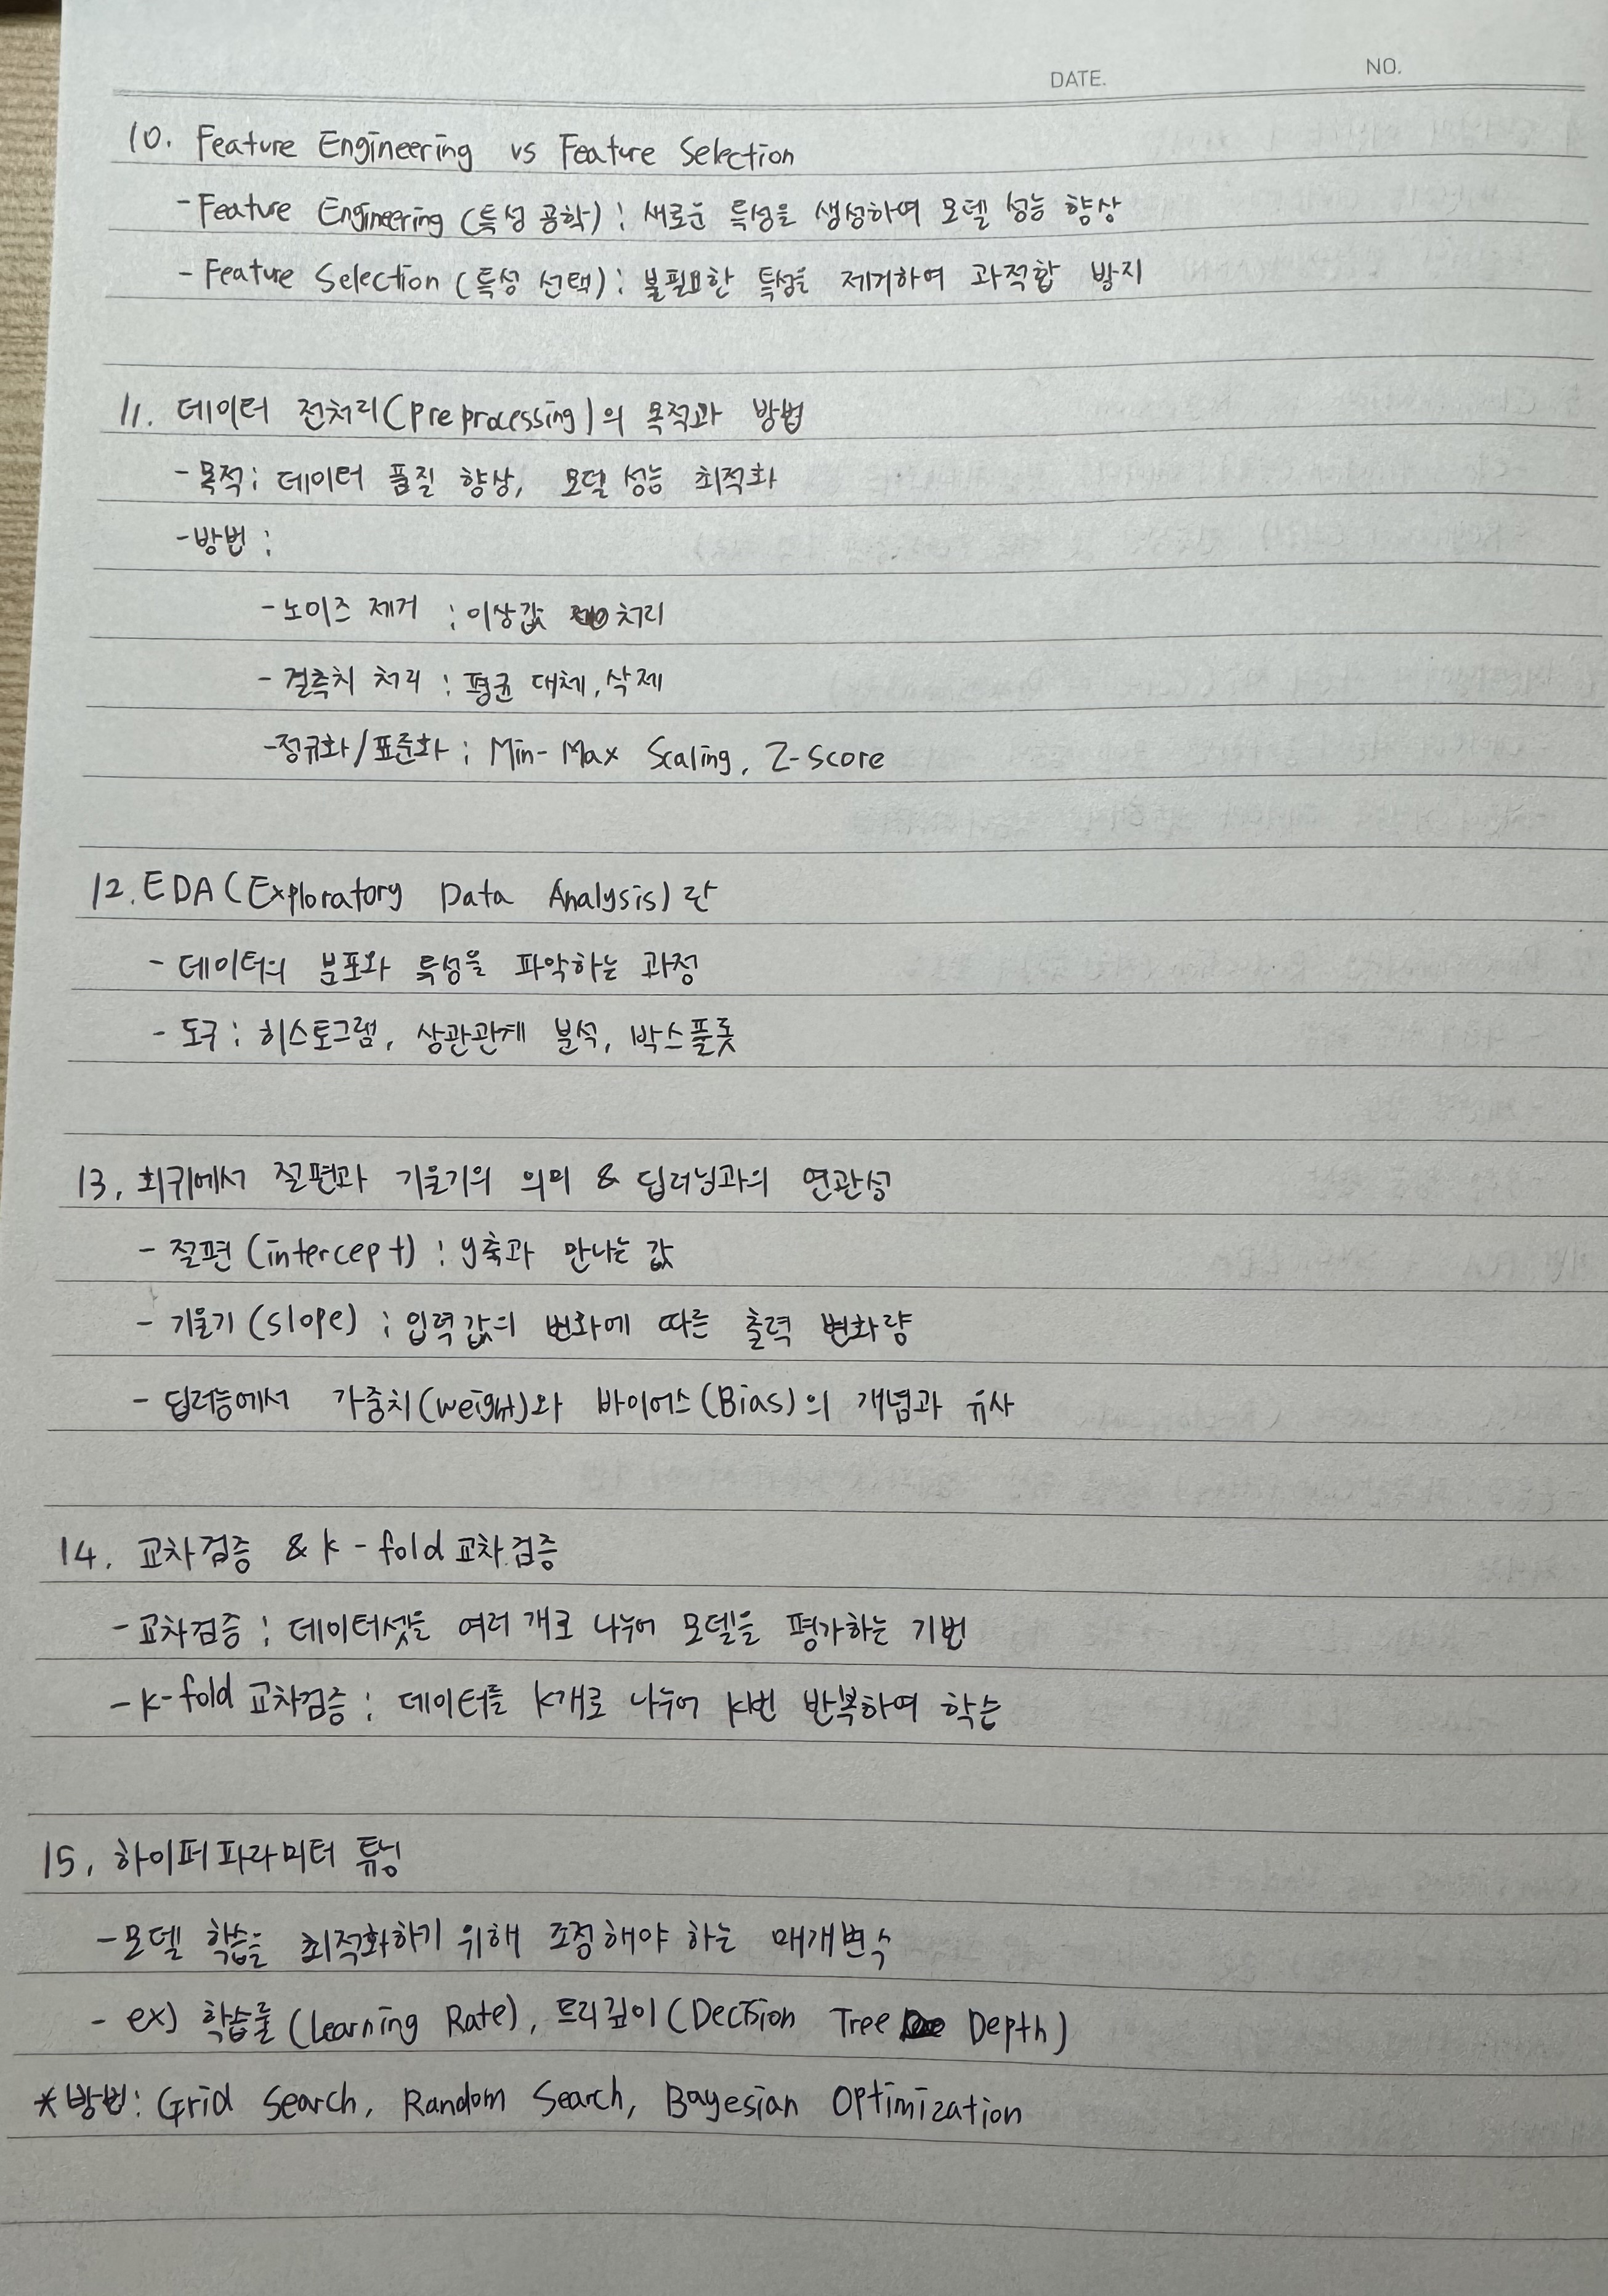 DATE. NO.
10. Feature Engineering vs Feature Selection
- Feature Engineering (특성 공학) : 새로운 특성을 생성하여 모델 성능 향상
- Feature Selection (특성 선택) : 불필요한 특성을 제거하여 과적합 방지
11. 데이터 전처리(preprocessing)의 목적과 방법
- 목적 : 데이터 품질 향상, 모델 성능 최적화
- 방법 :
- 노이즈 제거 : 이상값 처리
- 결측치 처리 : 평균 대체, 삭제
- 정규화/표준화 : Min-Max Scaling, Z-score
12. EDA (Exploratory Data Analysis)란
- 데이터의 분포와 특성을 파악하는 과정
- 도구 : 히스토그램, 상관관계 분석, 박스플롯
13. 회귀에서 절편과 기울기의 의미 & 딥러닝과의 연관성
- 절편 (intercept) : y축과 만나는 값
- 기울기 (slope) : 입력값의 변화에 따른 출력 변화량
- 딥러능에서 가중치(weight)와 바이어스(Bias)의 개념과 유사
14. 교차검증 & k-fold 교차검증
- 교차검증 : 데이터셋을 여러 개로 나누어 모델을 평가하는 기법
- k-fold 교차검증 : 데이터를 k개로 나누어 k번 반복하여 학습
15. 하이퍼파라미터 튜닝
- 모델 학습을 최적화하기 위해 조정해야 하는 매개변수
- ex) 학습률 (Learning Rate), 트리깊이 (Decision Tree Depth)
* 방법 : Grid Search, Random Search, Bayesian Optimization